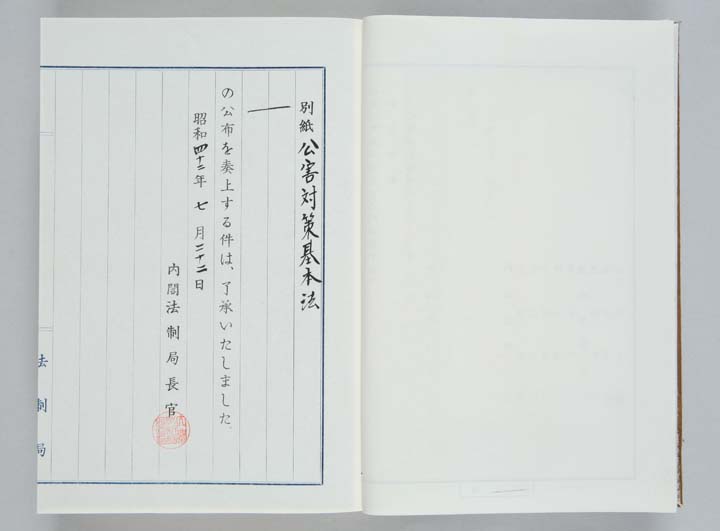 別紙 公害対策基本法
の公布を奏上する件は、了承いたしました。
昭和四十二年 七 月二十二日
内閣法制局長官
法制局